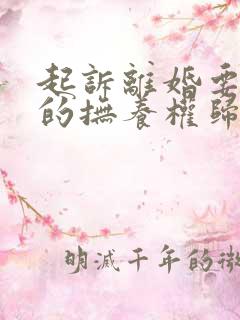 起訴離婚要
的撫養權歸
明滅千年的微